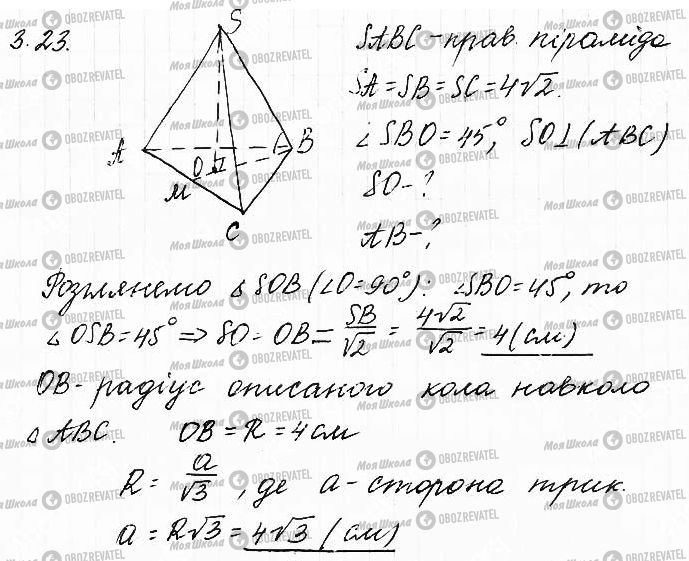 3.23.
S
A
O
B
M
C
SABC - прав. піраміда
SA = SB = SC = 4√2.
∠SBO = 45°, SO⊥(ABC)
SO - ?
AB - ?
Розглянемо △SOB (∠O = 90°): ∠SBO = 45°, то
∠OSB = 45° ⇒ SO = OB = SB/√2 = 4√2/√2 = 4 (см)
OB - радіус описаного кола навколо
△ABC. OB = R = 4 см
R = a/√3, де a - сторона трик.
a = R√3 = 4√3 (см)
Моя Школа OBOZREVATEL